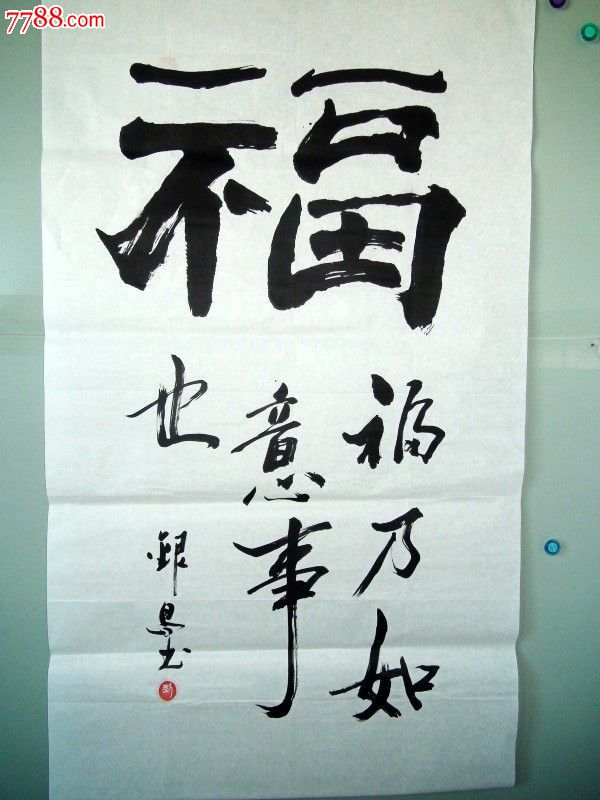 7788.com
福
福乃如
意事
也
銀
书